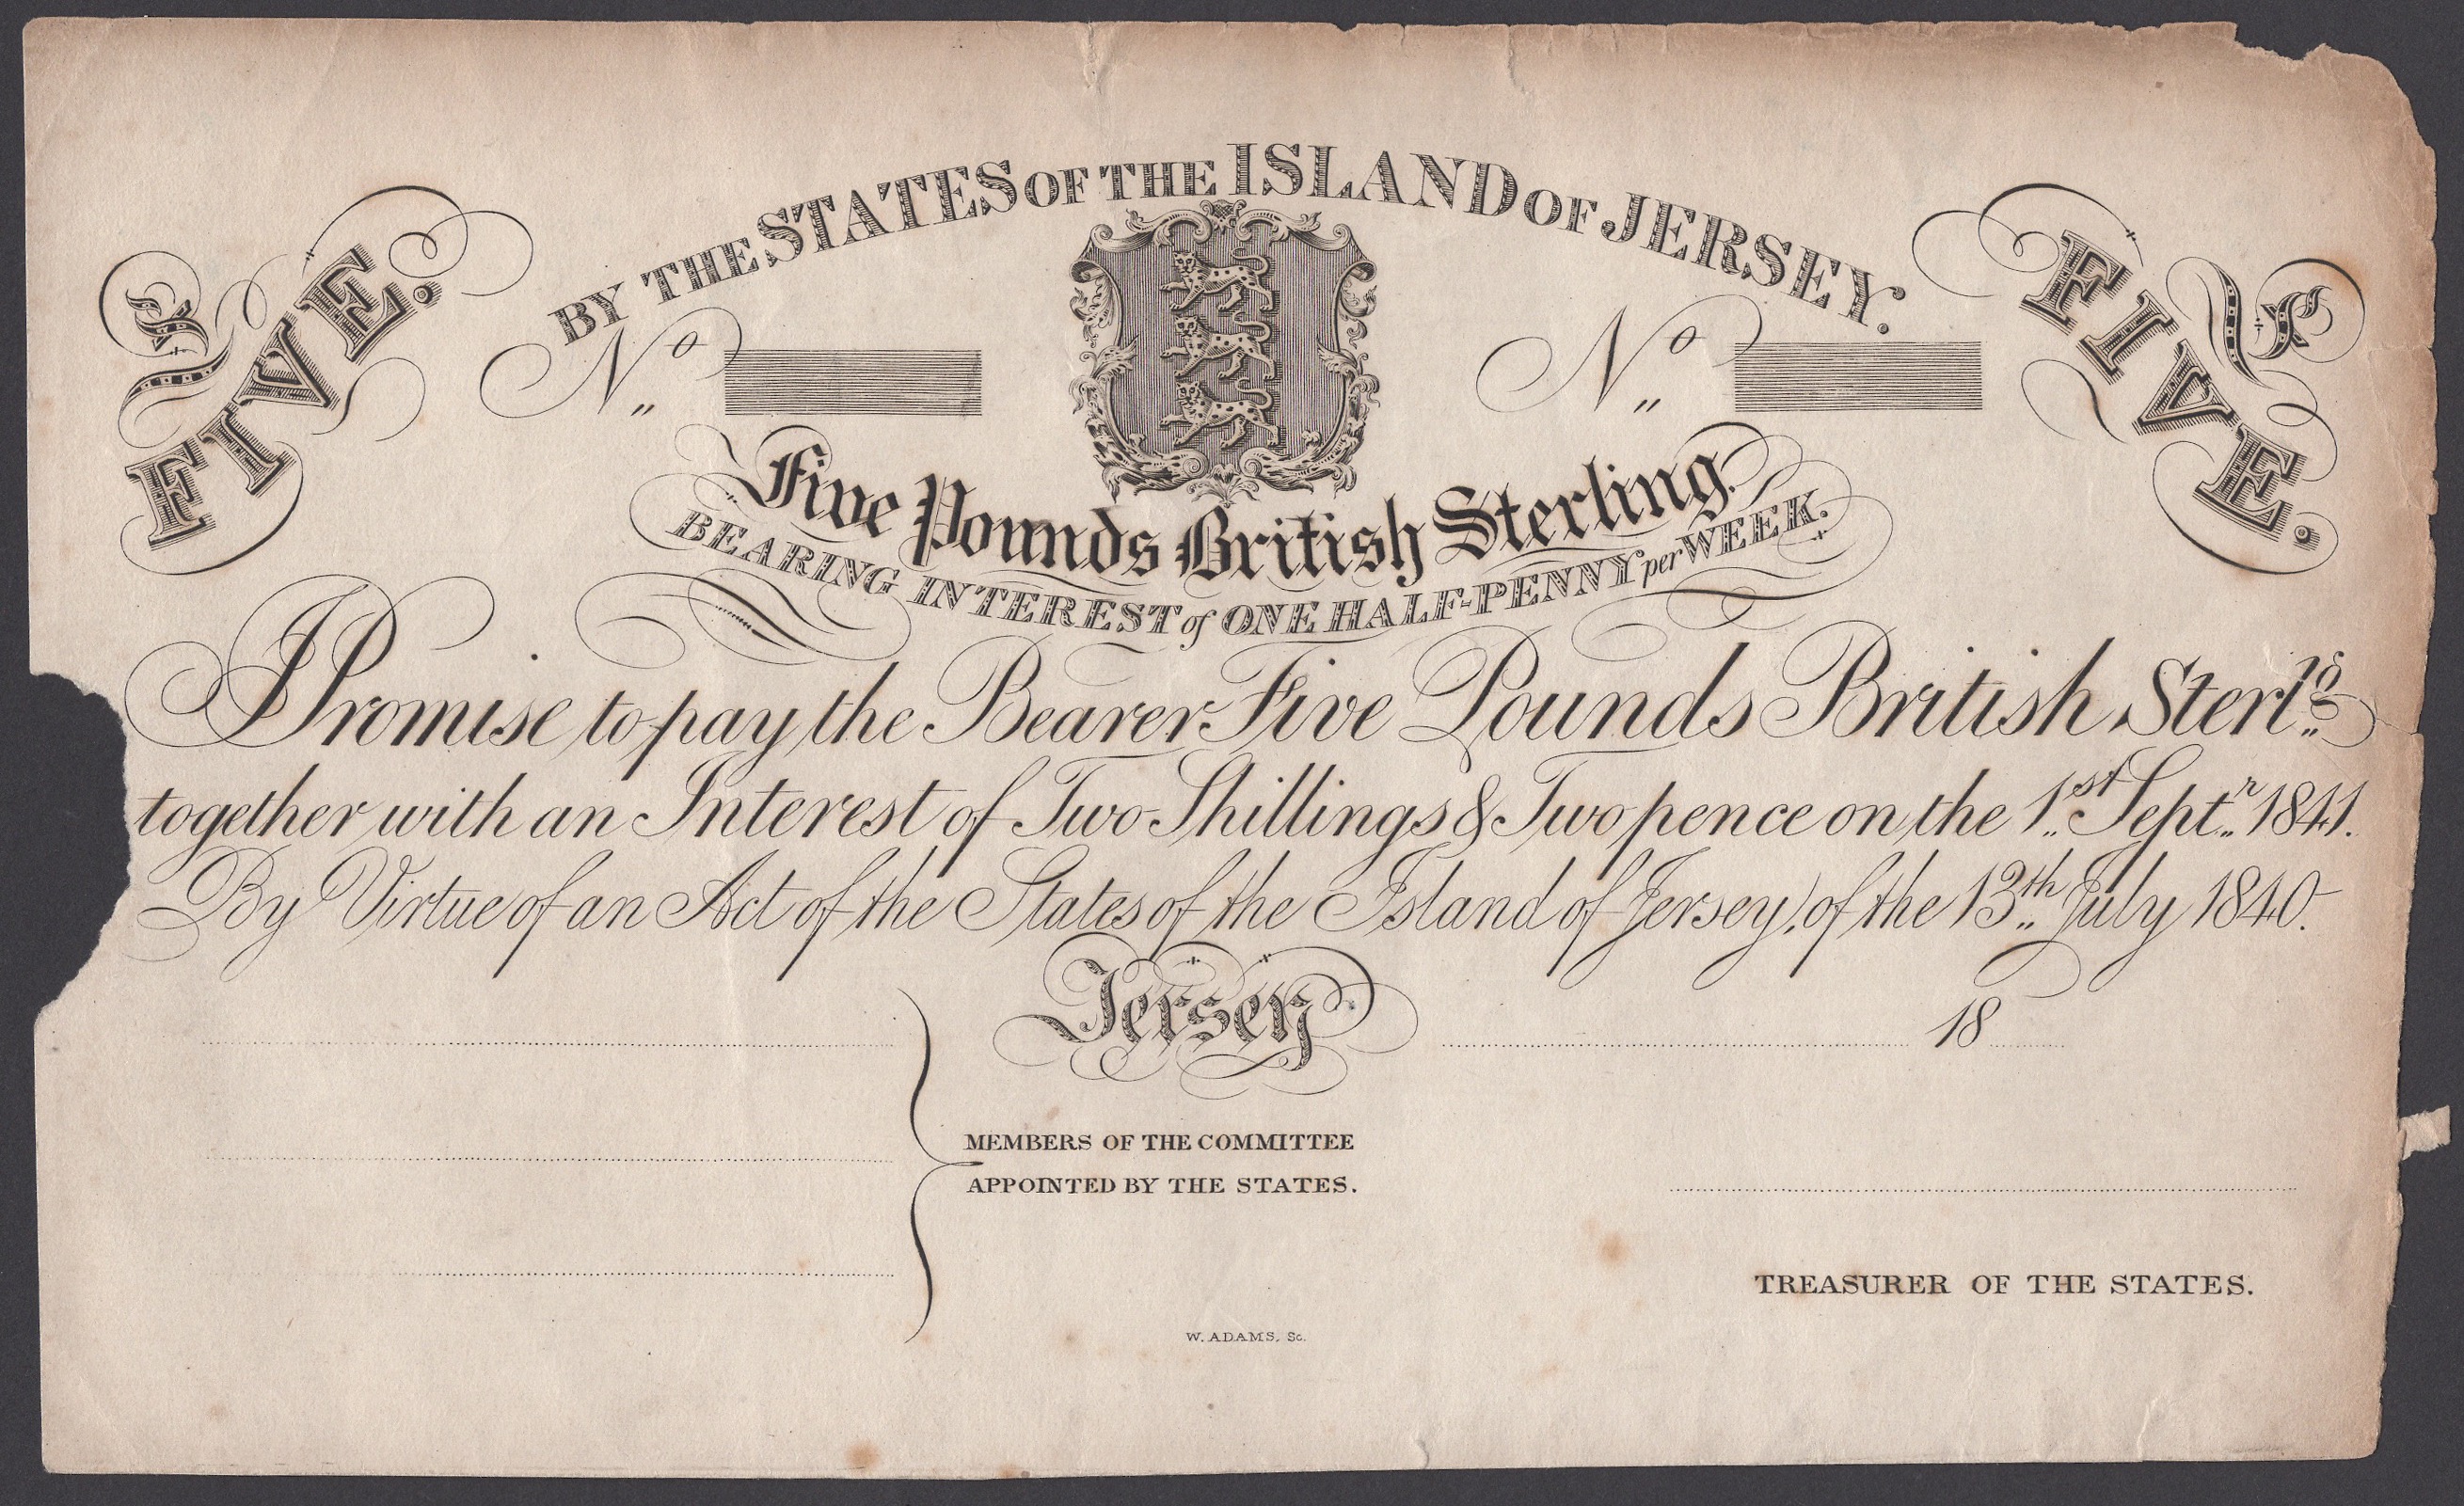 BY THE STATES OF THE ISLAND OF JERSEY.
£ FIVE.
£ FIVE.
No
No
Five Pounds British Sterling.
BEARING INTEREST of ONE HALF-PENNY per WEEK.
I Promise to pay the Bearer Five Pounds British Sterlg.
together with an Interest of Two Shillings & Two pence on the 1st Septr 1841.
By Virtue of an Act of the States of the Island of Jersey, of the 13th July 1840.
Jersey 18
MEMBERS OF THE COMMITTEE
APPOINTED BY THE STATES.
TREASURER OF THE STATES.
W. ADAMS, Sc.